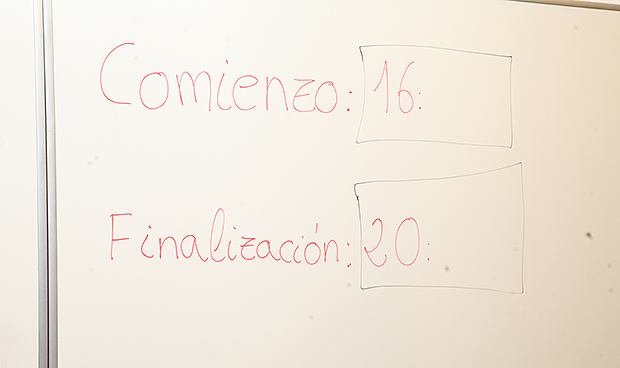 Comienzo: 16:
Finalización: 20: